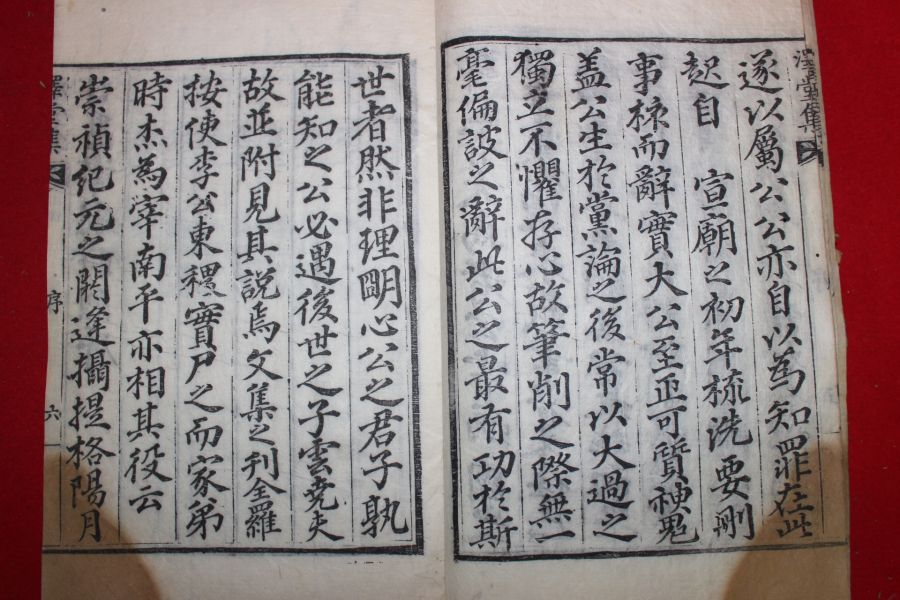 澤堂集
遂以屬公公亦自以為知罪在此
起自　宣廟之初年梳洗要刪
事核而辭實大公至正可質神鬼
盖公生於黨論之後常以大過之
獨立不懼存心故筆削之際無一
毫偏詖之辭此公之最有功於斯
世者然非理明心公之君子孰
能知之公必遇後世之子雲堯夫
故並附見其說焉文集之刊全羅
按使李公東稷實尸之而家弟
時杰為宰南平亦相其役云
崇禎紀元之閼逢攝提格陽月
澤堂集　序　六